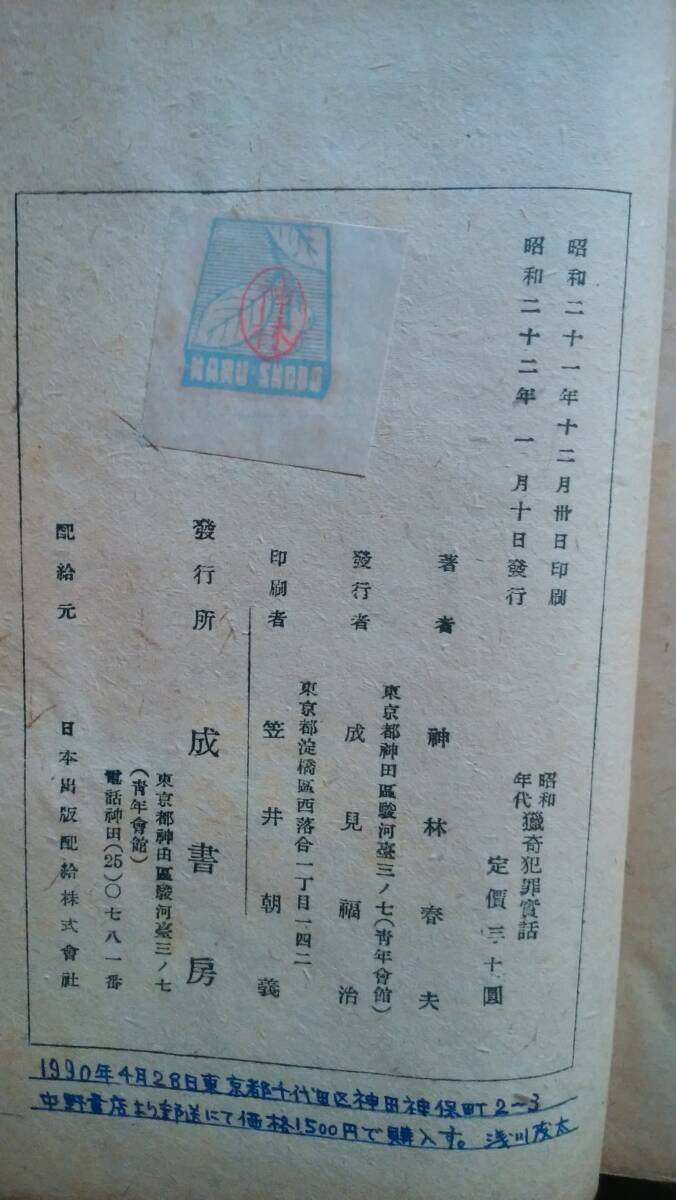 昭和二十一年十二月卅日印刷
昭和二十二年一月十日發行
昭和
年代
獵奇犯罪實話
定價三十圓
著者 神林春夫
東京都神田區駿河臺三ノ七(靑年會館)
發行者 成見福治
東京都淀橋區西落合一丁目一四二
印刷者 笠井朝義
發行所 成書房
東京都神田區駿河臺三ノ七
(靑年會館)
電話神田(25)〇七八一番
配給元 日本出版配給株式會社
神林
NARU-SHOBO
1990年4月28日東京都千代田区神田神保町2-3
中野書店より郵送にて価格1,500円で購入す。浅川茂太